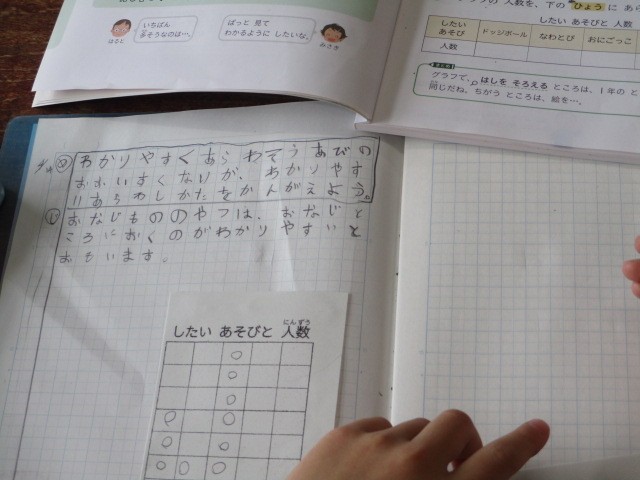 いちばん
多そうなのは…。
はると
ぱっと 見て
わかるように したいな。
みさき
人数を、下の ひょう に あら
したい あそびと 人数
したい あそび ドッジボール なわとび おにごっこ
人数
まとめ
グラフで、はしを そろえる ところは、1年の と
同じだね。ちがう ところは、絵を…。
わかりやすくあらわそう あびの
おおいすくないが、わかりやす
いあらわしかたをかんがえよう。
おなじもののやつは、おなじと
ころにおくのがわかりやすいと
おもいます。
したい あそびと 人数
にんずう